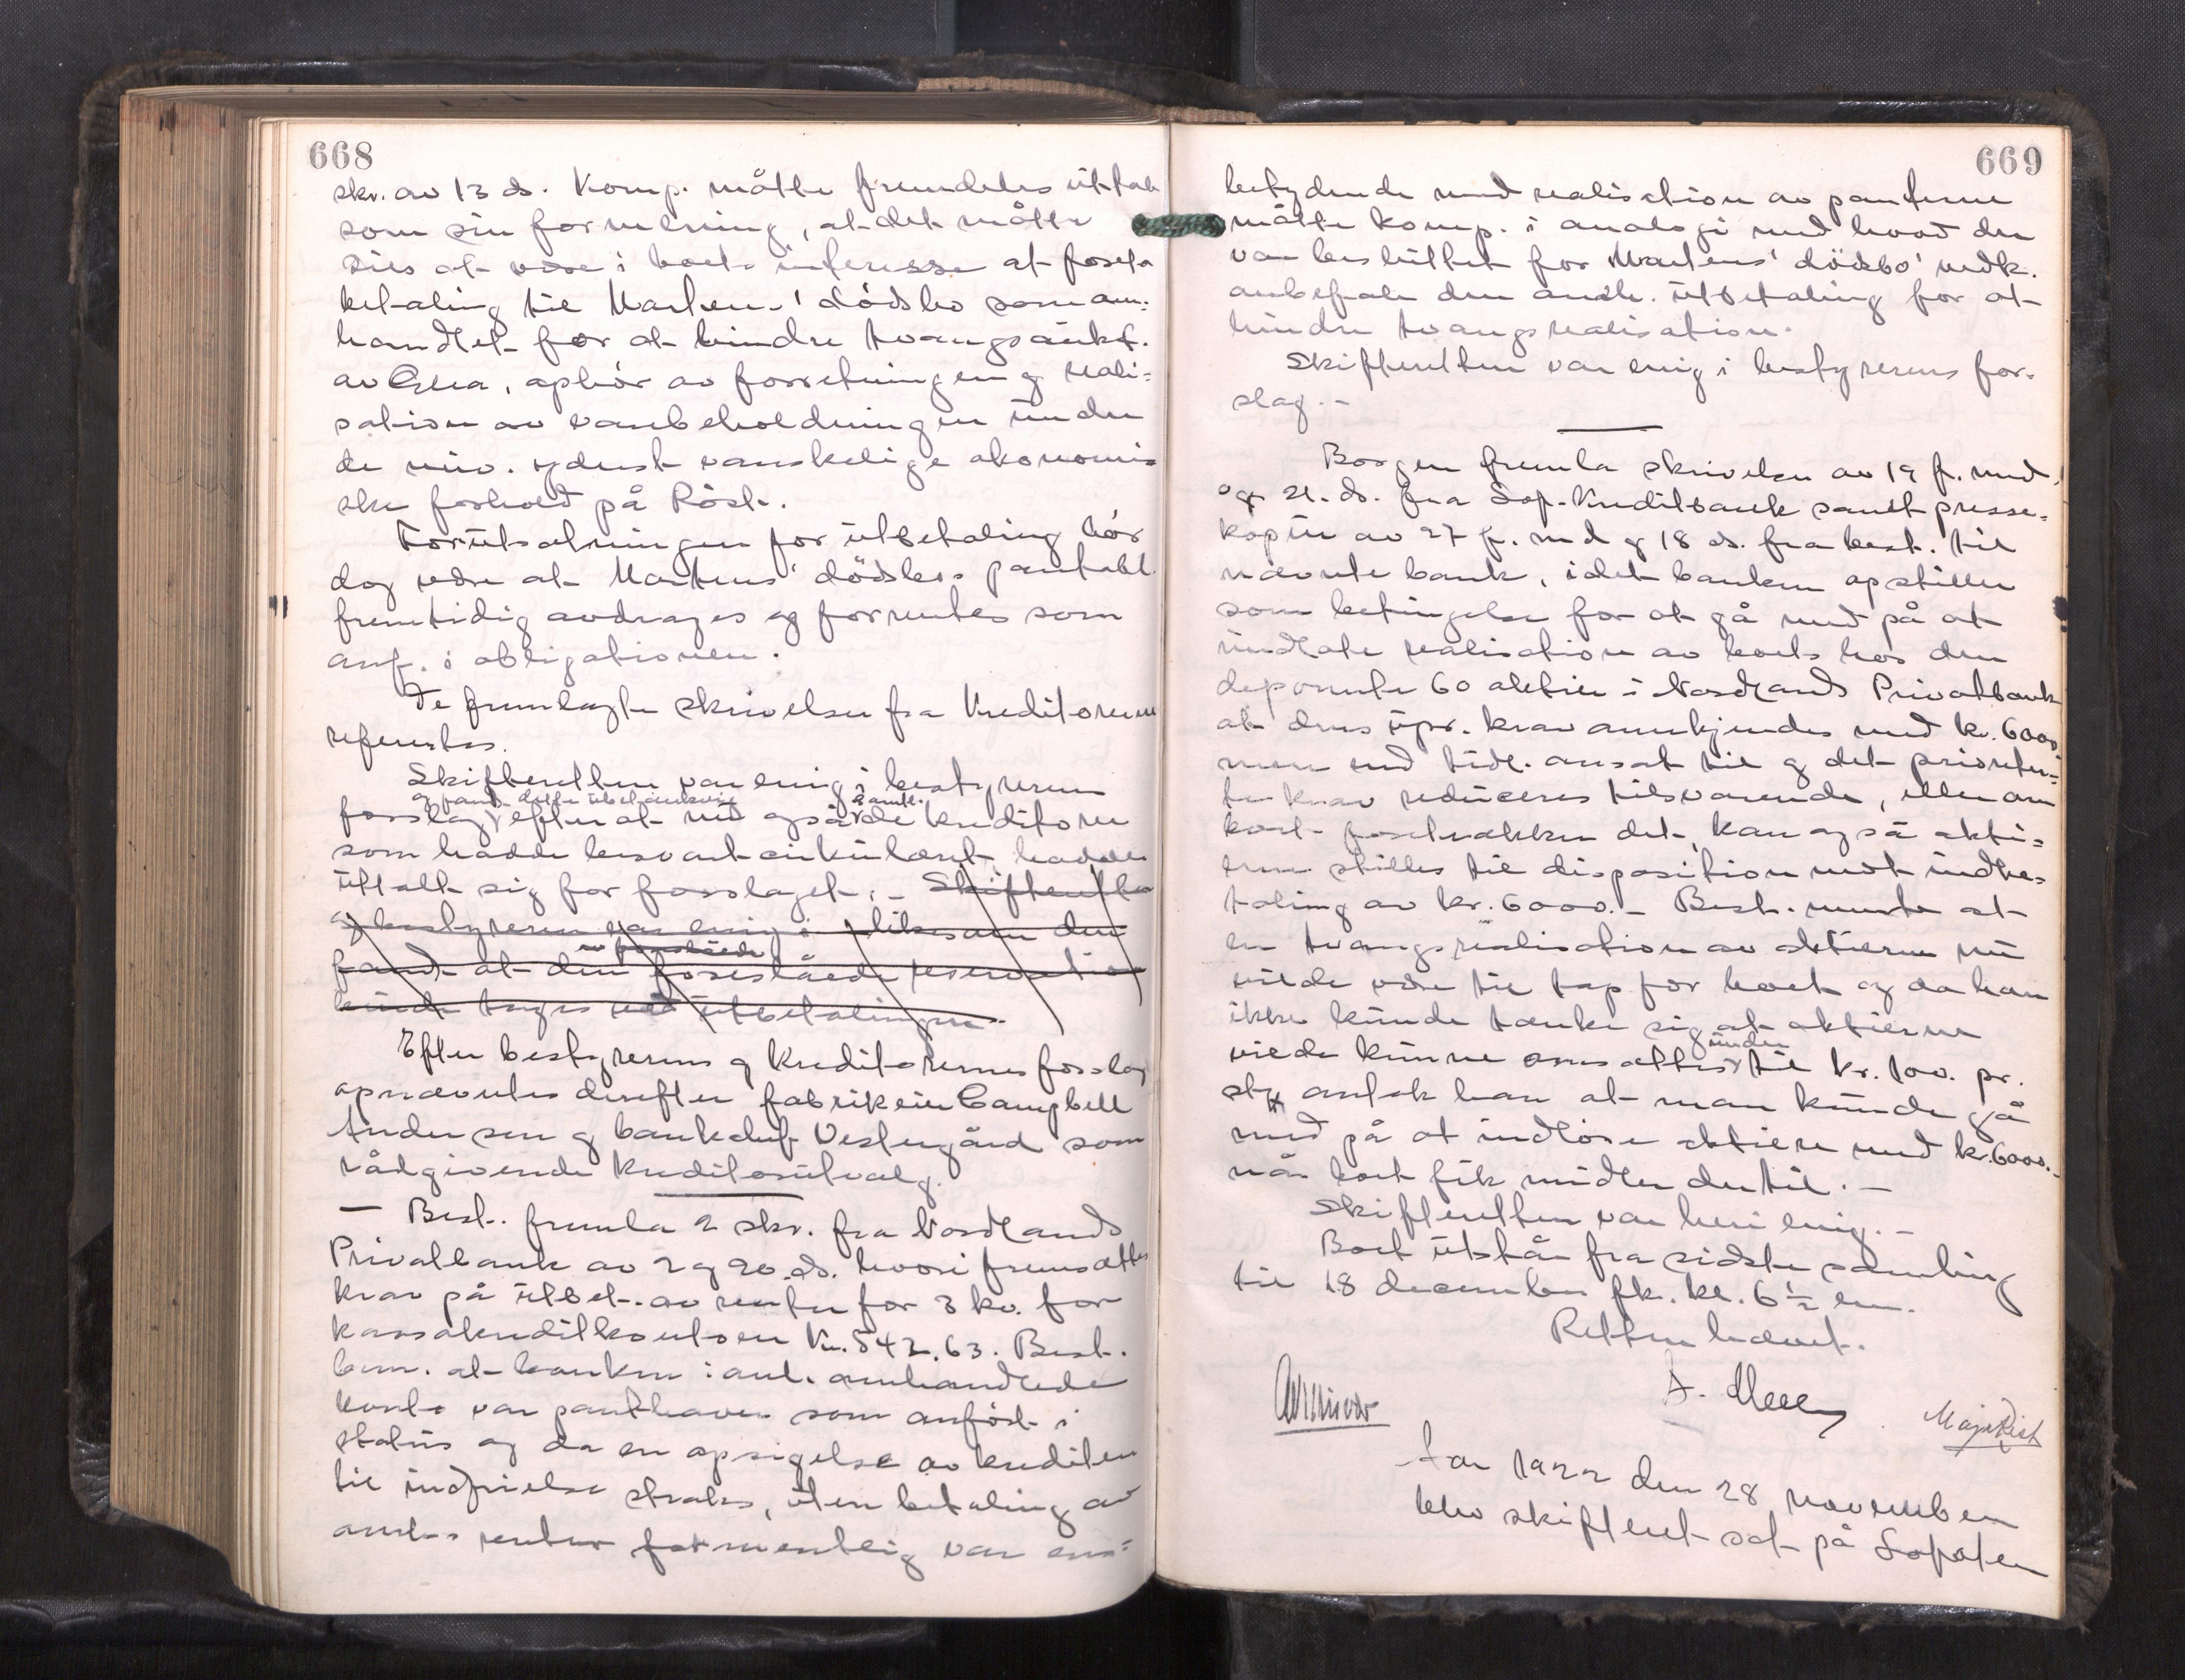 668
skr. av 13 ds. Komp. måtte fremdeles uttale
som sin formening, at det måtte
sies at være i boets interesse at foreta
betaling til Martens' dödsbo som om:
handlet for at hindre tvangsaukt.
av Glea, ophör av forretningen og reali:
sation av varebeholdningen under
de nuv. yderst vanskelige økonomi=
ske forhold på Röst.
Forutsætningen for utbetaling bör
dog være at Martens' dödsbos pantobl.
fremtidig avdrages og forrentes som
anf. i obligationen.
De fremlagte skrivelser fra Kreditorerne
refertes.
Skifteretten var enig i bestyrerens
og fandt dette å amtl.
forslag, efter at også de kreditorer
som hadde besvart cirkulæret hadde
uttalt sig for forslaget. - Skifteretten
og bestyreren var enig i likesom den
fandt at den foreslåede reservation
kunde tages ved utbetalingen.
Efter bestyrerens og Kreditorernes forslag
opnævntes derefter fabrikeier Campbell
Andersen og bankchef Vestergård som
rådgivende Kreditorutvalg.
- Best. fremla 2 skr. fra Nordlands
Privatbank av 2 og 20. ds. hvori fremsættes
krav på utbet. av renter for 3 kv. for
kassakreditkontoen Kr. 542.63. Best.
bem. at banken i anl. omhandlede
konto var panthaver som anfört i
status og da en opsigelse av krediten
til indfrielse straks, uten betaling av
renter formentlig var ens=
669
betydende med realisation av panterne
måtte komp. i analogi med hvad der
var besluttet for Martens' dödsbo' vedk.
anbefale den utbetaling for at
hindre tvangsrealisation.
Skifteretten var enig i bestyrerens for-
slag. -
Borgen fremla skrivelse av 19 f. md.
og 21. ds. fra Lof. Kreditbank samt presse=
kopiu av 27 f. md og 18 ds. fra best. til
nævnte bank, idet banken opstiller
som betingelse for at gå med på at
undlate realisation av boets hos den
deponerte 60 aktier i Nordlands Privatbank
at dens upr. krav annerkjendes med kr. 6000.
mere end tidl. ansat til og det prioriter=
te krav reduceres tilsvarende, eller om
boet foretrækker det, kan også akti=
erne stilles til disposition mot indbe=
taling av kr. 6000. - Best. mente at
en tvangsrealisation av aktierne nu
vilde være til tap for boet og da han
ikke kunde tænke sig at aktierne
under
vilde kunne omsættes til Kr. 100. pr.
stk antok han at man kunde gå
med på at indlöse aktiene med kr. 6000.-
når boet fik midler dertil. -
Skifteretten var heri enig. -
Boet utstår fra sidste samling
til 18 december fk. kl. 6 ½ em.
Retten hævet.
A. Meek
Aar 1922 den 28 november
blev skifteret sat på Lofoten